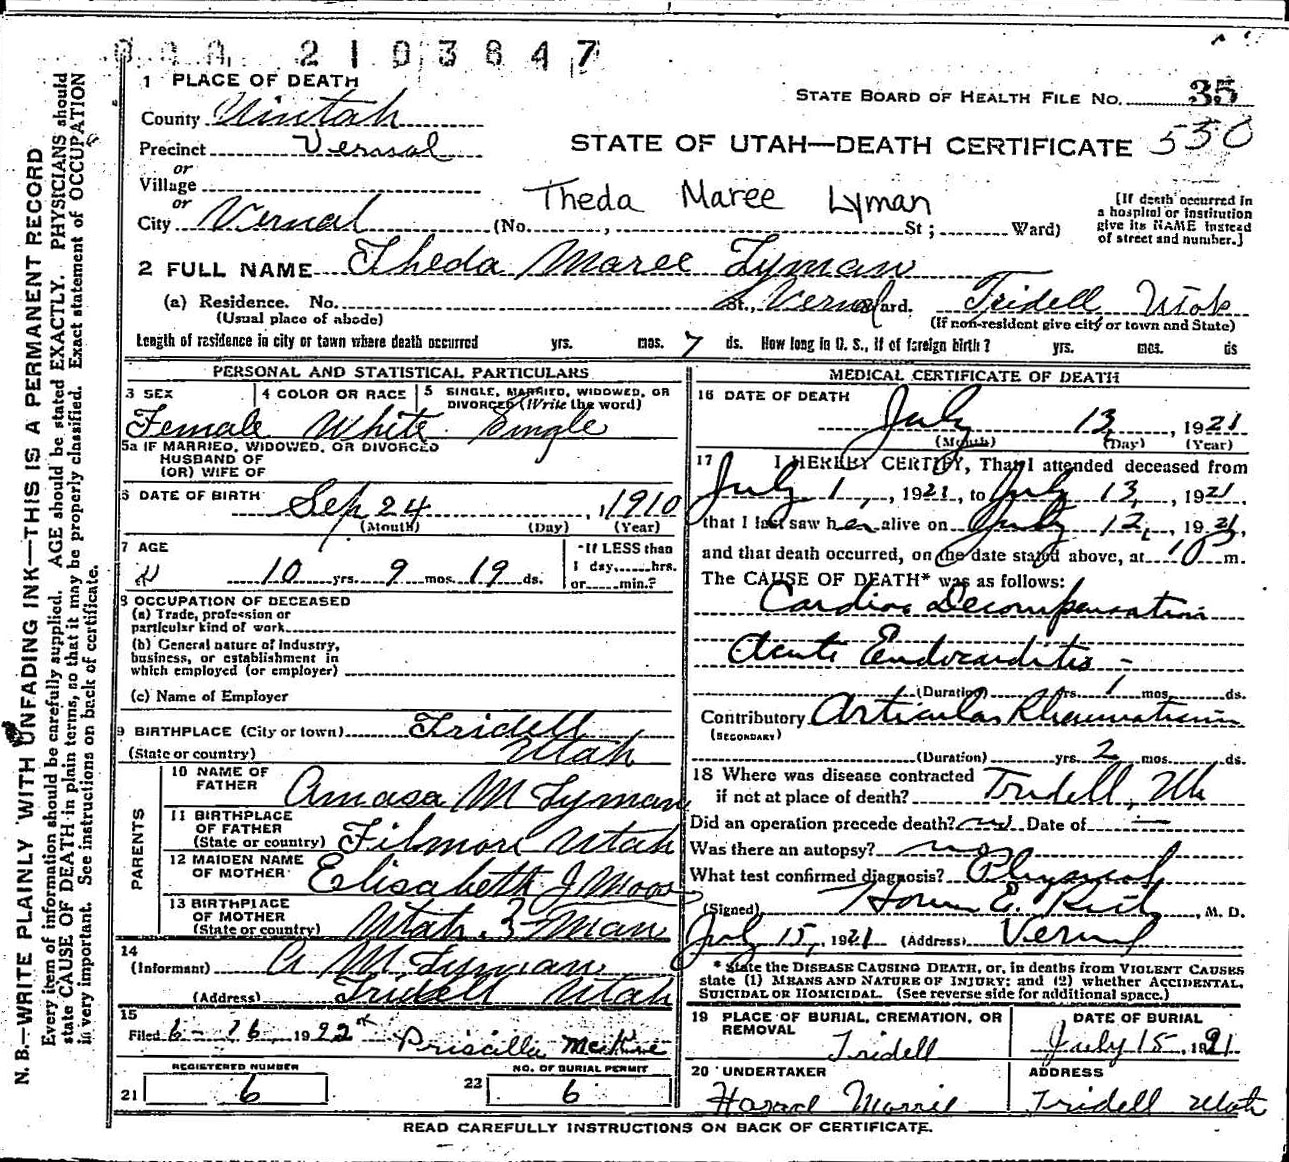 2103847
1 PLACE OF DEATH
STATE BOARD OF HEALTH FILE NO. 35
County Uintah
STATE OF UTAH—DEATH CERTIFICATE 550
Precinct Vernal
or
Village
or
Theda Maree Lyman
[If death occurred in
a hospital or institution
give its NAME instead
of street and number.]
City Vernal (No. , St; Ward)
2 FULL NAME Theda Maree Lyman
(a) Residence. No. St., Vernal Ward. Tridell Utah
(Usual place of abode) (If non-resident give city or town and State)
Length of residence in city or town where death occurred yrs. mos. 7 ds. How long in U. S., if of foreign birth? yrs. mos. ds
PERSONAL AND STATISTICAL PARTICULARS
3 SEX 4 COLOR OR RACE 5 SINGLE, MARRIED, WIDOWED, OR
DIVORCED (Write the word)
Female White Single
5a IF MARRIED, WIDOWED, OR DIVORCED
HUSBAND OF
(OR) WIFE OF
6 DATE OF BIRTH Sep 24, 1910
(Month) (Day) (Year)
7 AGE
10 yrs. 9 mos. 19 ds.
If LESS than
1 day, hrs.
or min.?
8 OCCUPATION OF DECEASED
(a) Trade, profession or
particular kind of work
(b) General nature of Industry,
business, or establishment in
which employed (or employer)
(c) Name of Employer
9 BIRTHPLACE (City or town) Tridell
(State or country) Utah
PARENTS
10 NAME OF
FATHER Amasa M Lyman
11 BIRTHPLACE
OF FATHER
(State or country) Filmore Utah
12 MAIDEN NAME
OF MOTHER Elisabeth J Moos
13 BIRTHPLACE
OF MOTHER
(State or country) Utah
14
(Informant) A M Lyman
(Address) Tridell Utah
15
Filed 6-26, 1922 Priscilla
REGISTERED NUMBER NO. OF BURIAL PERMIT
21 6 22 6
MEDICAL CERTIFICATE OF DEATH
16 DATE OF DEATH
July 13, 1921
(Month) (Day) (Year)
17 I HEREBY CERTIFY, That I attended deceased from
July 1, 1921, to July 13, 1921
that I last saw her alive on July 12, 1921,
and that death occurred, on the date stated above, at 10 m.
The CAUSE OF DEATH* was as follows:
Cardiac Decompensation
Acute Endocarditis -
(Duration) yrs. 1 mos. ds.
Contributory Articular Rheumatism
(SECONDARY)
(Duration) yrs. 2 mos. ds.
18 Where was disease contracted
if not at place of death? Tridell, Ut
Did an operation precede death? no Date of —
Was there an autopsy? no
What test confirmed diagnosis? Physical
(Signed) E. , M. D.
July 15, 1921 (Address) Vernal
* State the DISEASE CAUSING DEATH, or, in deaths from VIOLENT CAUSES
state (1) MEANS AND NATURE OF INJURY; and (2) whether ACCIDENTAL,
SUICIDAL OR HOMICIDAL. (See reverse side for additional space.)
19 PLACE OF BURIAL, CREMATION, OR
REMOVAL
Tridell
DATE OF BURIAL
July 15, 1921
20 UNDERTAKER ADDRESS
Tridell Utah
READ CAREFULLY INSTRUCTIONS ON BACK OF CERTIFICATE.
N. B.—WRITE PLAINLY WITH UNFADING INK—THIS IS A PERMANENT RECORD
Every item of information should be carefully supplied. AGE should be stated EXACTLY. PHYSICIANS should
state CAUSE OF DEATH in plain terms, so that it may be properly classified. Exact statement of OCCUPATION
is very important. See instructions on back of certificate.